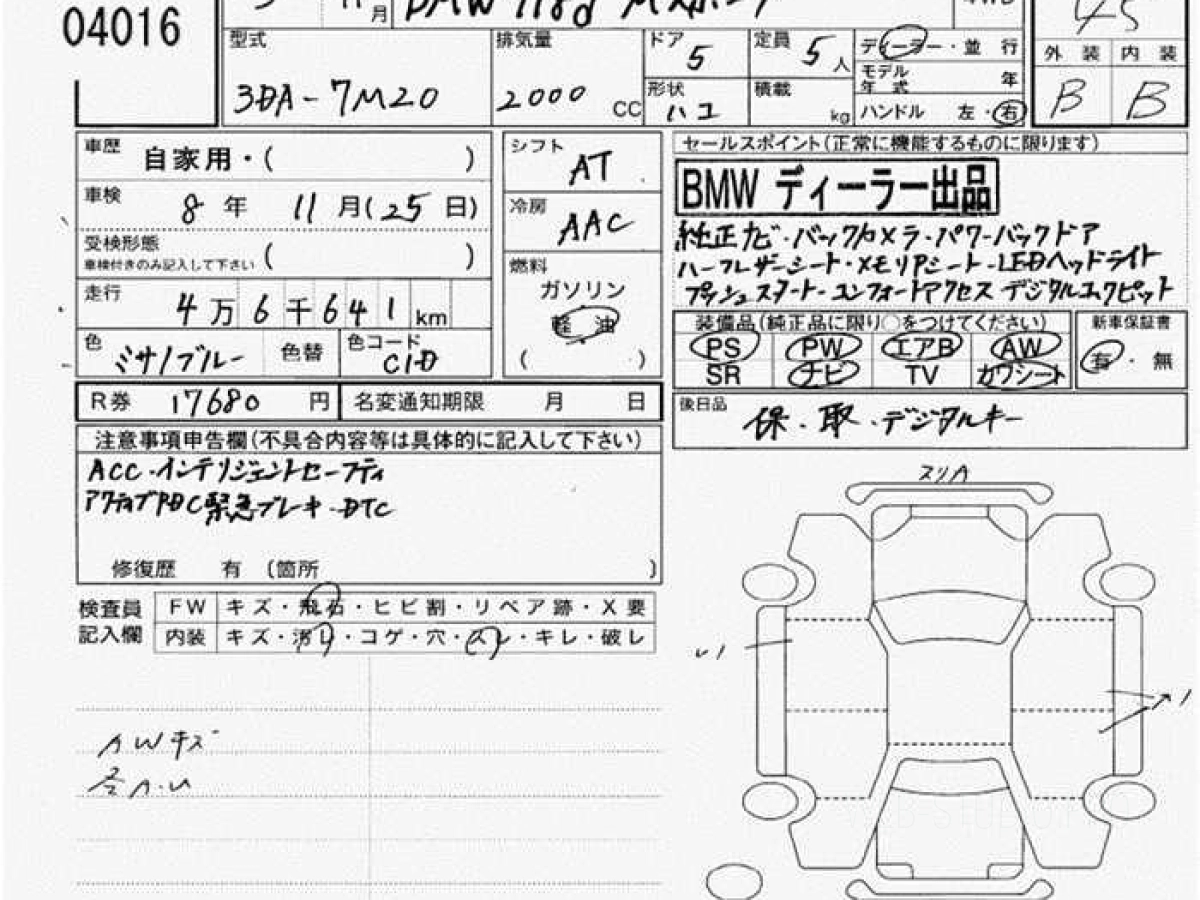 04016
月 BMW 118d Mスポーツ
45
型式 排気量 ドア 5 定員 5人 ディーラー・並 行 外 装 内 装
3DA-7M20 2000 CC 形状 ハコ 積載 kg モデル年式 年 B B
ハンドル 左・右
車歴 自家用・( )
車検 8年 11月(25日)
受検形態
車検付きのみ記入して下さい ( )
走行 4万6千641 km
色 ミサノブルー 色替 色コード C1D
シフト AT
冷房 AAC
燃料
ガソリン
軽 油
( )
セールスポイント(正常に機能するものに限ります)
BMW ディーラー出品
純正ナビ・バックカメラ・パワーバックドア
ハーフレザーシート・メモリアシート・LEDヘッドライト
プッシュスタート・コンフォートアクセス デジタルコクピット
装備品(純正品に限り○をつけてください) 新車保証書
PS PW エアB AW 有・無
SR ナビ TV カワシート
R券 17680 円 名変通知期限 月 日
後日品 保・取・デジタルキー
注意事項申告欄(不具合内容等は具体的に記入して下さい)
ACC・インテリジェントセーフティ
アクティブPDC緊急ブレーキ・DTC
修復歴 有 (箇所 )
検査員記入欄
FW キズ・飛石・ヒビ割・リペア跡・X要
内装 キズ・汚レ・コゲ・穴・スレ・キレ・破レ
AWキズ
スリA